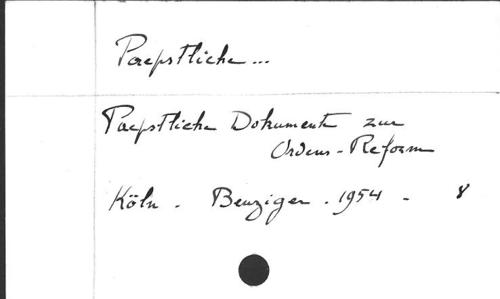 Paepstliche...
Paepstliche Dokumente zur
Ordens-Reform
Köln. Benziger. 1954 - 8